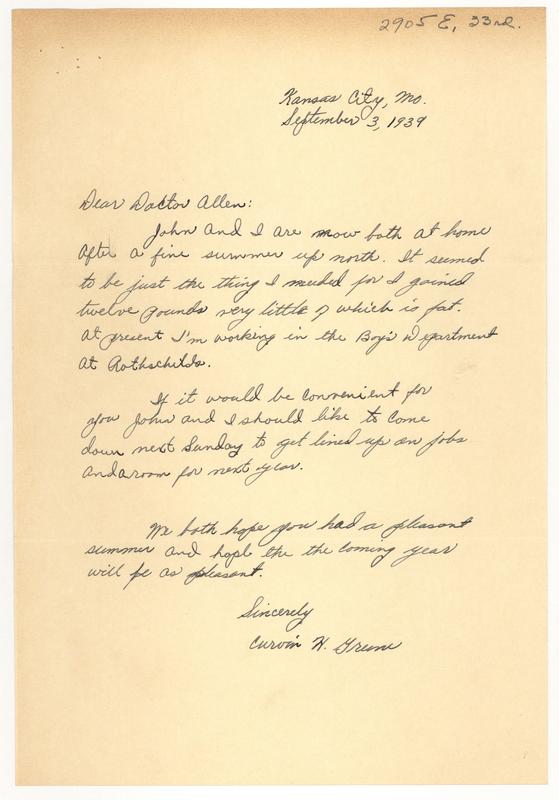 2905 E, 33rd.
Kansas City, Mo.
September 3, 1939
Dear Doctor Allen:
John and I are now both at home
after a fine summer up north. It seemed
to be just the thing I needed for I gained
twelve pounds very little of which is fat.
At present I'm working in the Boy's Department
at Rothschilds.
If it would be convenient for
you John and I should like to come
down next Sunday to get lined up on jobs
and a room for next year.
We both hope you had a pleasant
summer and hope the the coming year
will be as pleasant.
Sincerely
H.